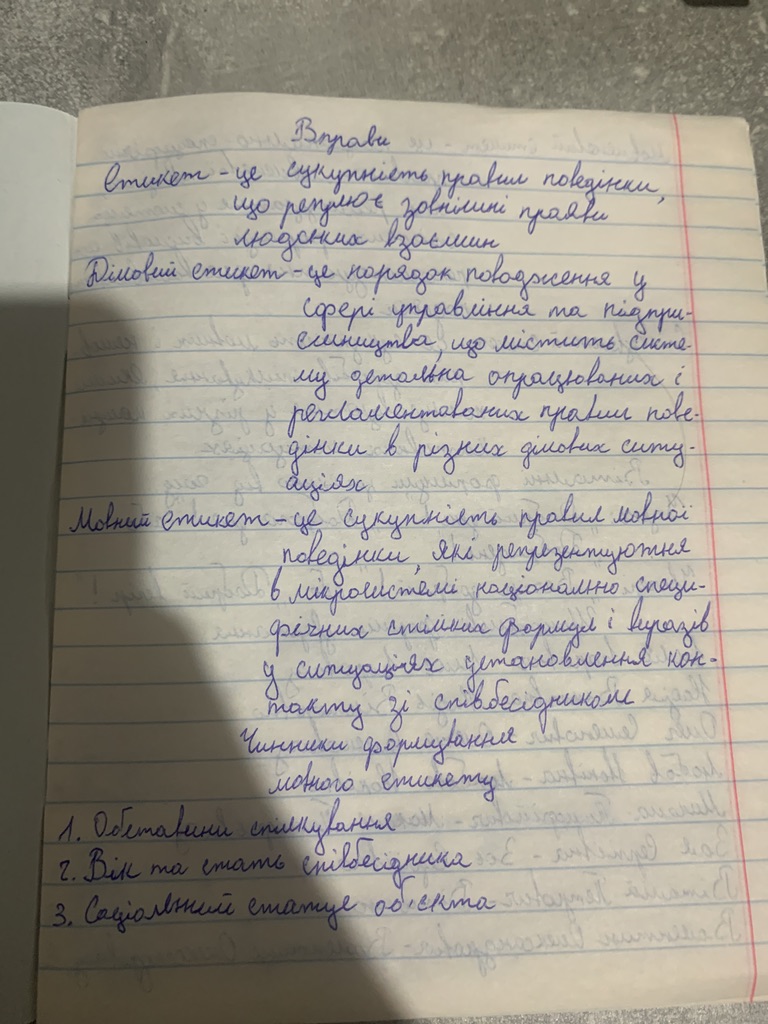 Вправи
Етикет - це сукупність правил поведінки,
що регулює зовнішні прояви
людських взаємин
Діловий етикет - це порядок поводження у
сфері управління та підпри-
ємництва, що містить систе-
му детальна опрацюваних і
регламентаваних правил пове-
дінки в різних ділових ситу-
аціях
Мовний етикет - це сукупність правил мовної
поведінки, які репрезентуються
в мікросистемі національно специ-
фічних стійких формул і виразів
у ситуаціях установлення кон-
такту зі співбесідником
Чинники формування
мовного етикету
1. Обставини спілкування
2. Вік та стать співбесідника
3. Соціальний статус об'єкта